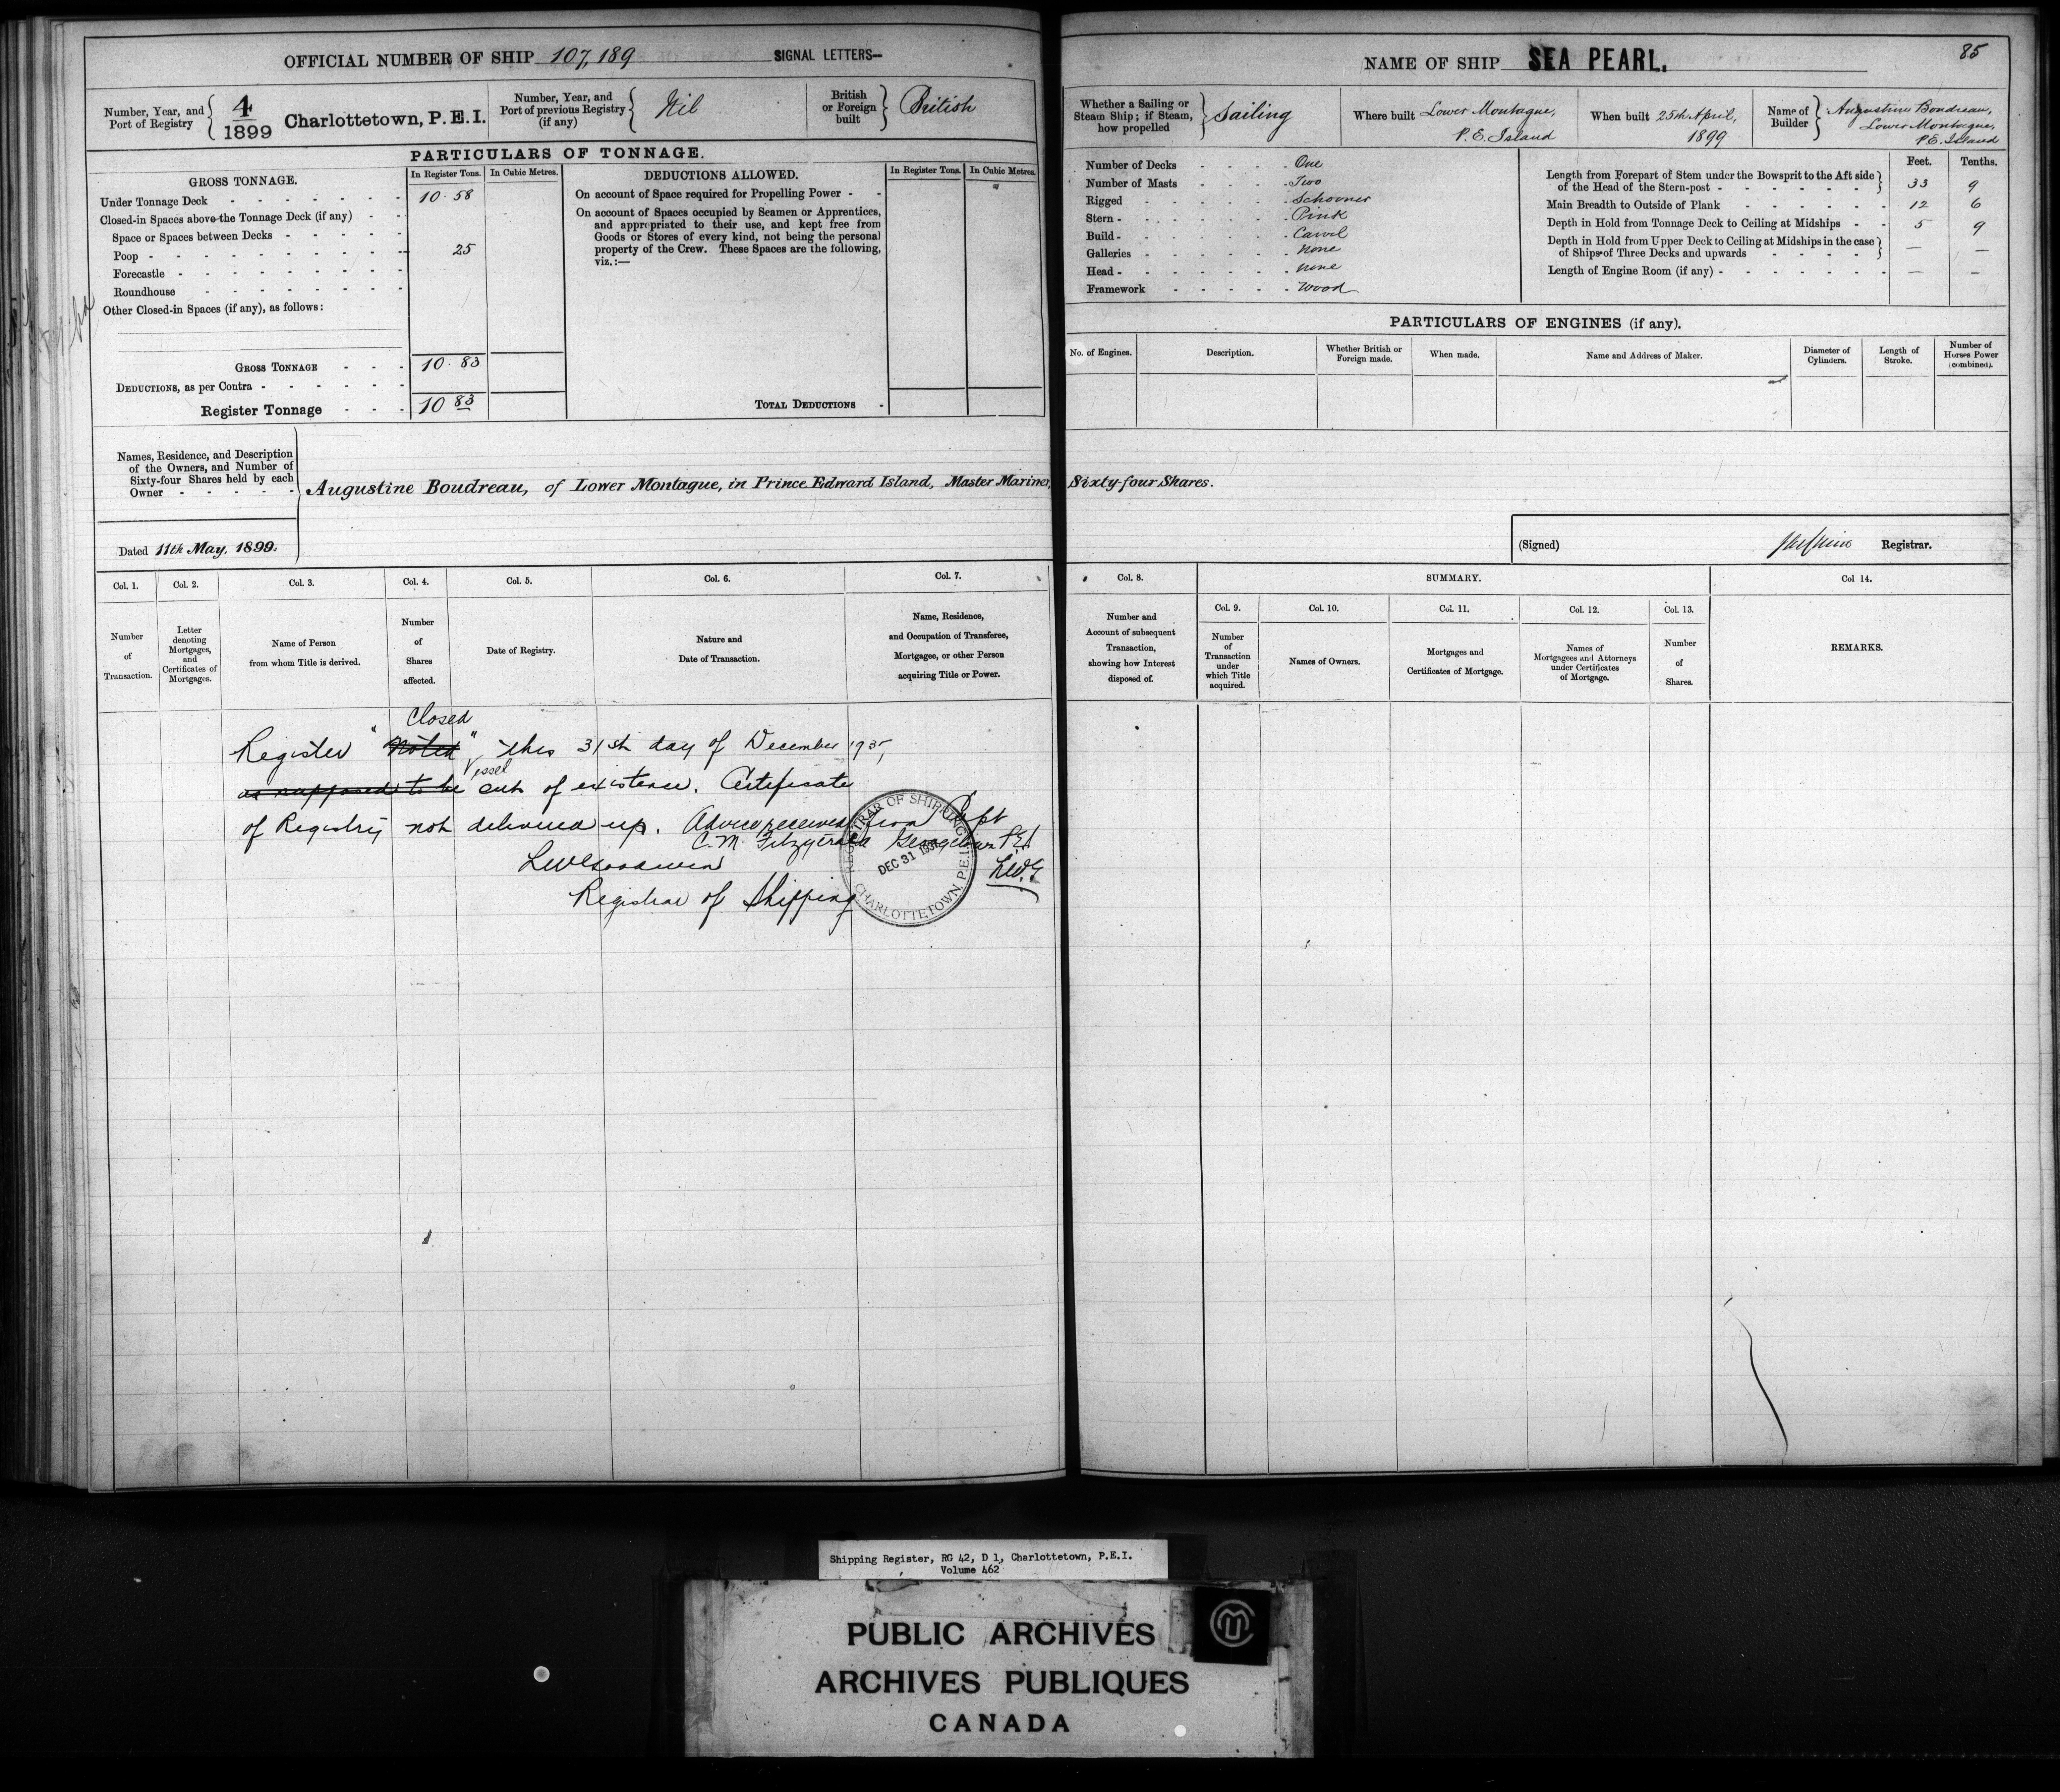 OFFICIAL NUMBER OF SHIP 107,189 SIGNAL LETTERS—
Number, Year, and Port of Registry { 4/1899 Charlottetown, P.E.I.
Number, Year, and Port of previous Registry (if any) { Nil
British or Foreign built } British
PARTICULARS OF TONNAGE.
GROSS TONNAGE. In Register Tons. In Cubic Metres.
Under Tonnage Deck - - - 10.58
Closed-in Spaces above the Tonnage Deck (if any) - -
Space or Spaces between Decks - - - - -
Poop - - - 25
Forecastle - - -
Roundhouse - - -
Other Closed-in Spaces (if any), as follows:
GROSS TONNAGE - - - 10.83
DEDUCTIONS, as per Contra - - -
Register Tonnage - - - 10 83
DEDUCTIONS ALLOWED. In Register Tons. In Cubic Metres.
On account of Space required for Propelling Power - -
On account of Spaces occupied by Seamen or Apprentices,
and appropriated to their use, and kept free from
Goods or Stores of every kind, not being the personal
property of the Crew. These Spaces are the following,
viz.:—
TOTAL DEDUCTIONS -
Names, Residence, and Description
of the Owners, and Number of
Sixty-four Shares held by each
Owner - - - - -
Augustine Boudreau, of Lower Montague, in Prince Edward Island, Master Mariner, Sixty-four Shares.
Dated 11th May, 1899.
Col. 1. Col. 2. Col. 3. Col. 4. Col. 5. Col. 6. Col. 7.
Number of Transaction.
Letter denoting Mortgages, and Certificates of Mortgages.
Name of Person from whom Title is derived.
Number of Shares affected.
Date of Registry.
Nature and Date of Transaction.
Name, Residence, and Occupation of Transferee, Mortgagee, or other Person acquiring Title or Power.
Closed
Register "Noted" this 31st day of December 1935,
Vessel
as supposed to be out of existence. Certificate
of Registry not delivered up. Advice received from Capt
C.M. Fitzgerald Georgetown P.E.I
L.W.G
LW Goodwin
Registrar of Shipping
REGISTRAR OF SHIPPING
DEC 31
CHARLOTTETOWN, P.E.I.
NAME OF SHIP SEA PEARL.
85
Whether a Sailing or Steam Ship; if Steam, how propelled } Sailing
Where built Lower Montague, P.E. Island
When built 25th April, 1899
Name of Builder } Augustine Boudreau, Lower Montague, P.E. Island
Number of Decks - - - - One
Number of Masts - - - - Two
Rigged - - - - Schooner
Stern - - - - Pink
Build - - - - Carvel
Galleries - - - - None
Head - - - - none
Framework - - - - Wood
Feet. Tenths.
Length from Forepart of Stem under the Bowsprit to the Aft side of the Head of the Stern-post - - - 33 9
Main Breadth to Outside of Plank - - - 12 6
Depth in Hold from Tonnage Deck to Ceiling at Midships - - 5 9
Depth in Hold from Upper Deck to Ceiling at Midships in the case of Ships of Three Decks and upwards - - - — —
Length of Engine Room (if any) - - - — —
PARTICULARS OF ENGINES (if any).
No. of Engines. Description. Whether British or Foreign made. When made. Name and Address of Maker. Diameter of Cylinders. Length of Stroke. Number of Horses Power (combined).
(Signed) Registrar.
Col. 8. SUMMARY. Col 14.
Col. 9. Col. 10. Col. 11. Col. 12. Col. 13.
Number and Account of subsequent Transaction, showing how Interest disposed of.
Number of Transaction under which Title acquired.
Names of Owners.
Mortgages and Certificates of Mortgage.
Names of Mortgagees and Attorneys under Certificates of Mortgage.
Number of Shares.
REMARKS.
Shipping Register, RG 42, D 1, Charlottetown, P.E.I.
Volume 462
PUBLIC ARCHIVES
ARCHIVES PUBLIQUES
CANADA